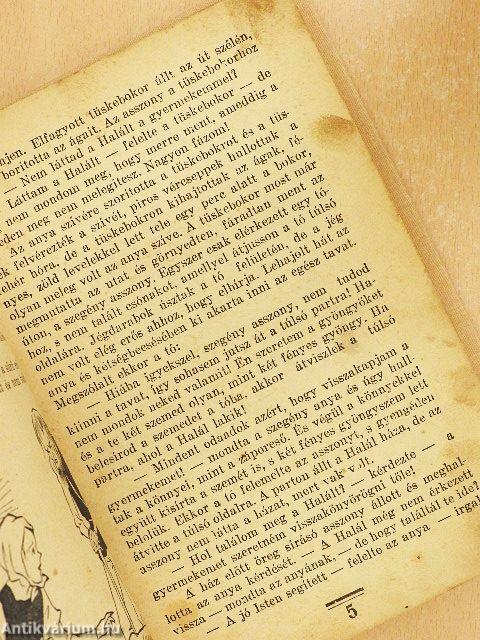 ajen. Elfagyott tüskebokor állt az út szélén,
borította az ágait. Az asszony a tüskebokorhoz
— Nem láttad a Halált a gyermekemmel?
Láttam a Halált — felelte a tüskebokor — de
nem mondom meg, hogy merre ment, ameddig a
eden meg nem melegítesz. Nagyon fázom!
Az anya szívére szorította a tüskebokrot és a tüs-
ek felvérezték a szívét, piros vércseppek hullottak a
ehér hóra, de a tüskebokron kihajtottak az ágak, fé-
nyes, zöld levelekkel lett tele egy perc alatt a bokor,
olyan meleg volt az anya szíve. A tüskebokor most már
megmutatta az utat és görnyedten, fáradtan ment az
úton, a szegény asszony. Egyszer csak elérkezett egy tó-
hoz, s nem talált csónakot, amellyel átjusson a tó túlsó
oldalára. Jégdarabok úsztak a tó felületén, de a jég
nem volt elég erős ahhoz, hogy elbírja. Lehajolt hát az
anya és kétségbeesésében ki akarta inni az egész tavat.
Megszólalt ekkor a tó:
— Hiába igyekszel, szegény asszony, nem tudod
kiinni a tavat, így sohasem jutsz át a túlsó partra! Ha-
nem mondok neked valamit! Én szeretem a gyöngyöket
és a te két szemed olyan, mint két fényes gyöngy. Ha
belesírod a szemedet a tóba, akkor átviszlek a túlsó
partra, ahol a Halál lakik!
— Mindent odaadok azért, hogy visszakapjam a
gyermekemet! — mondta a szegény anya és úgy hull-
tak a könnyei, mint a záporeső. És végül a könnyekkel
együtt kisírta a szemét is, s két fényes gyöngyszem lett
belőlük. Ekkor a tó felemelte az asszonyt, s gyengéden
átvitte a túlsó oldalra. A parton állt a Halál háza, de az
asszony nem látta a házat, mert vak volt.
— Hol találom meg a Halált? — kérdezte — a
gyermekemet szeretném visszakönyörögni tőle!
A ház előtt öreg sírásó asszony állott és meghal-
lotta az anya kérdését. — A Halál még nem érkezett
vissza — mondta az anyának, — de hogy találtál te ide?
— A jó Isten segített — felelte az anya — irgal
5
Antikvárium.hu